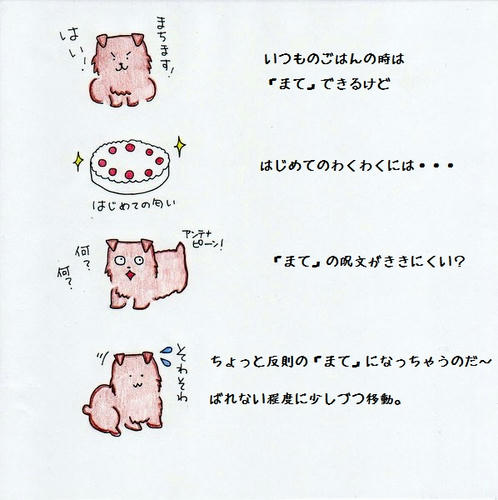 はい!
まちます!
いつものごはんの時は
『まて』できるけど
はじめてのわくわくには・・・
はじめての匂い
何?
何?
アンテナ
ピーン!
『まて』の呪文がききにくい?
そわそわ
ちょっと反則の『まて』になっちゃうのだ〜
ばれない程度に少しづつ移動。